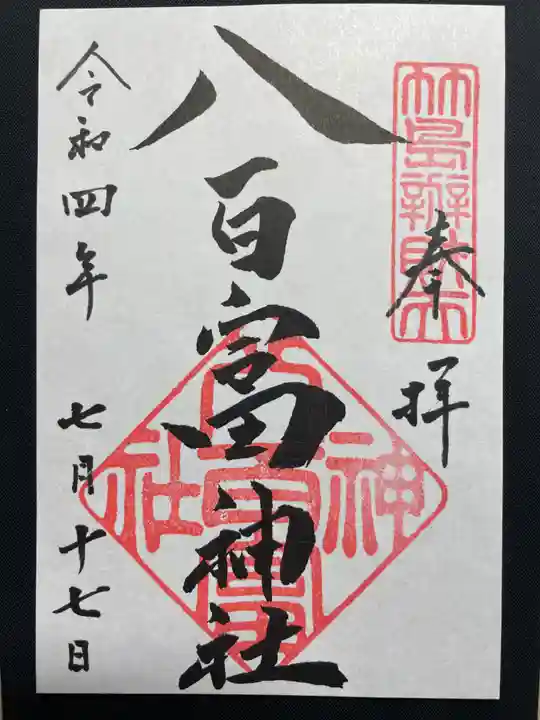 奉拝
竹島辨財天
八百富神社
八百富神社
令和四年七月十七日